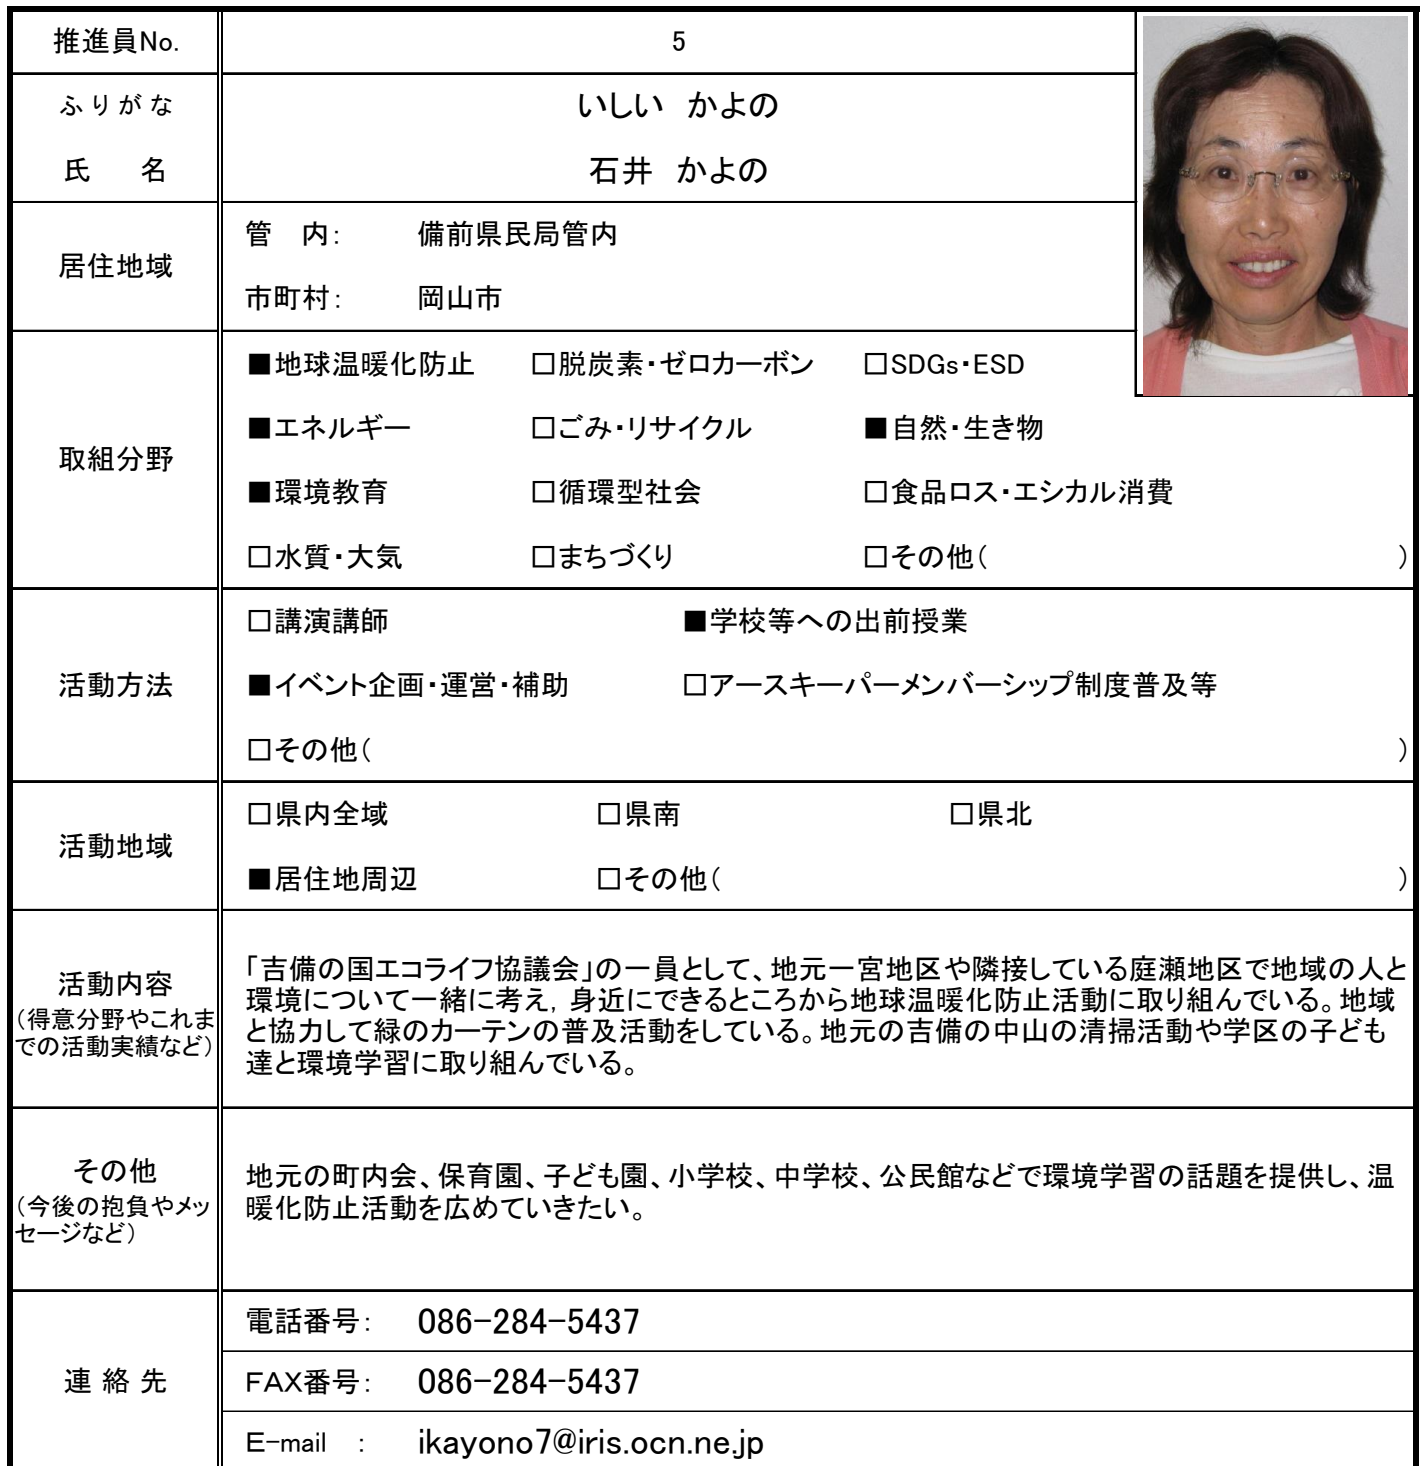 推進員No. 5
ふりがな いしい かよの
氏 名 石井 かよの
居住地域
管 内: 備前県民局管内
市町村: 岡山市
取組分野
■地球温暖化防止 □脱炭素・ゼロカーボン □SDGs・ESD
■エネルギー □ごみ・リサイクル ■自然・生き物
■環境教育 □循環型社会 □食品ロス・エシカル消費
□水質・大気 □まちづくり □その他( )
活動方法
□講演講師 ■学校等への出前授業
■イベント企画・運営・補助 □アースキーパーメンバーシップ制度普及等
□その他( )
活動地域
□県内全域 □県南 □県北
■居住地周辺 □その他( )
活動内容
(得意分野やこれま
での活動実績など)
「吉備の国エコライフ協議会」の一員として、地元一宮地区や隣接している庭瀬地区で地域の人と
環境について一緒に考え, 身近にできるところから地球温暖化防止活動に取り組んでいる。地域
と協力して緑のカーテンの普及活動をしている。地元の吉備の中山の清掃活動や学区の子ども
達と環境学習に取り組んでいる。
その他
(今後の抱負やメッ
セージなど)
地元の町内会、保育園、子ども園、小学校、中学校、公民館などで環境学習の話題を提供し、温
暖化防止活動を広めていきたい。
連絡先
電話番号: 086-284-5437
FAX番号: 086-284-5437
E-mail : ikayono7@iris.ocn.ne.jp